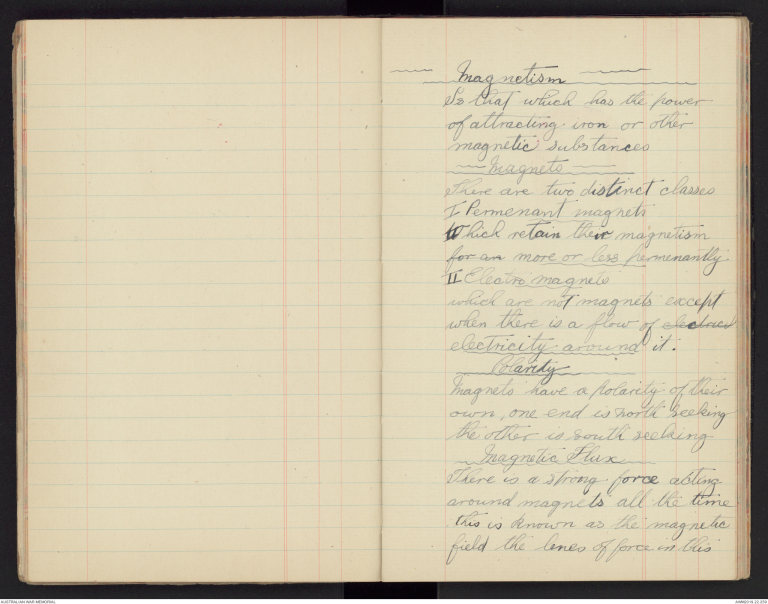 Magnetism
Is that which has the power
of attracting iron or other
magnetic substances
Magnets
There are two distinct classes
I Permenant magnets
Which retain their magnetism
for an more or less permenantly
II Electro magnets
which are not magnets except
when there is a flow of electrici
electricity around it.
Polarity
Magnets have a polarity of their
own, one end is north seeking
the other is south seeking
Magnetic Flux
There is a strong force acting
around magnets all the time
this is known as the magnetic
field the lines of force in this
AUSTRALIAN WAR MEMORIAL